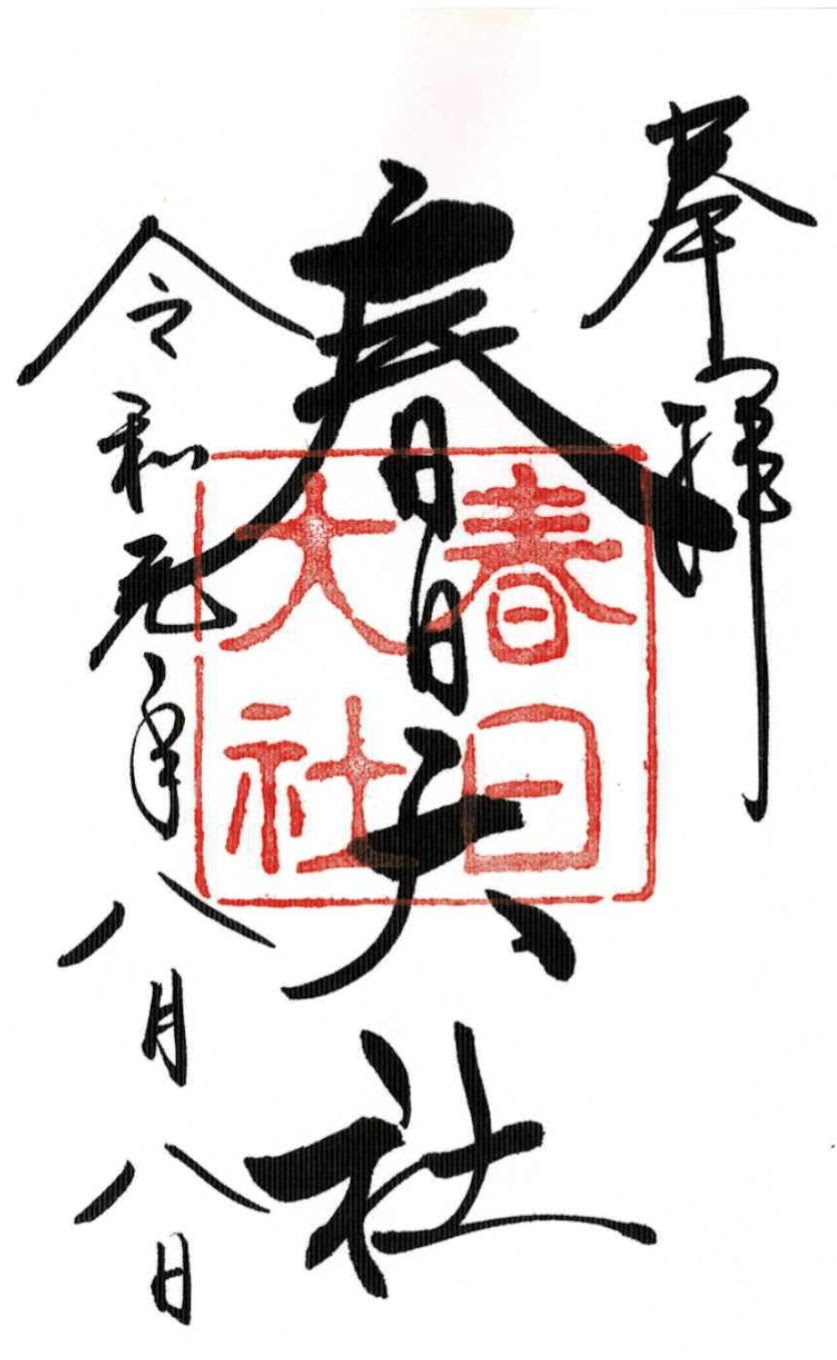 奉拝
春日大社
春日
大社
令和元年八月八日